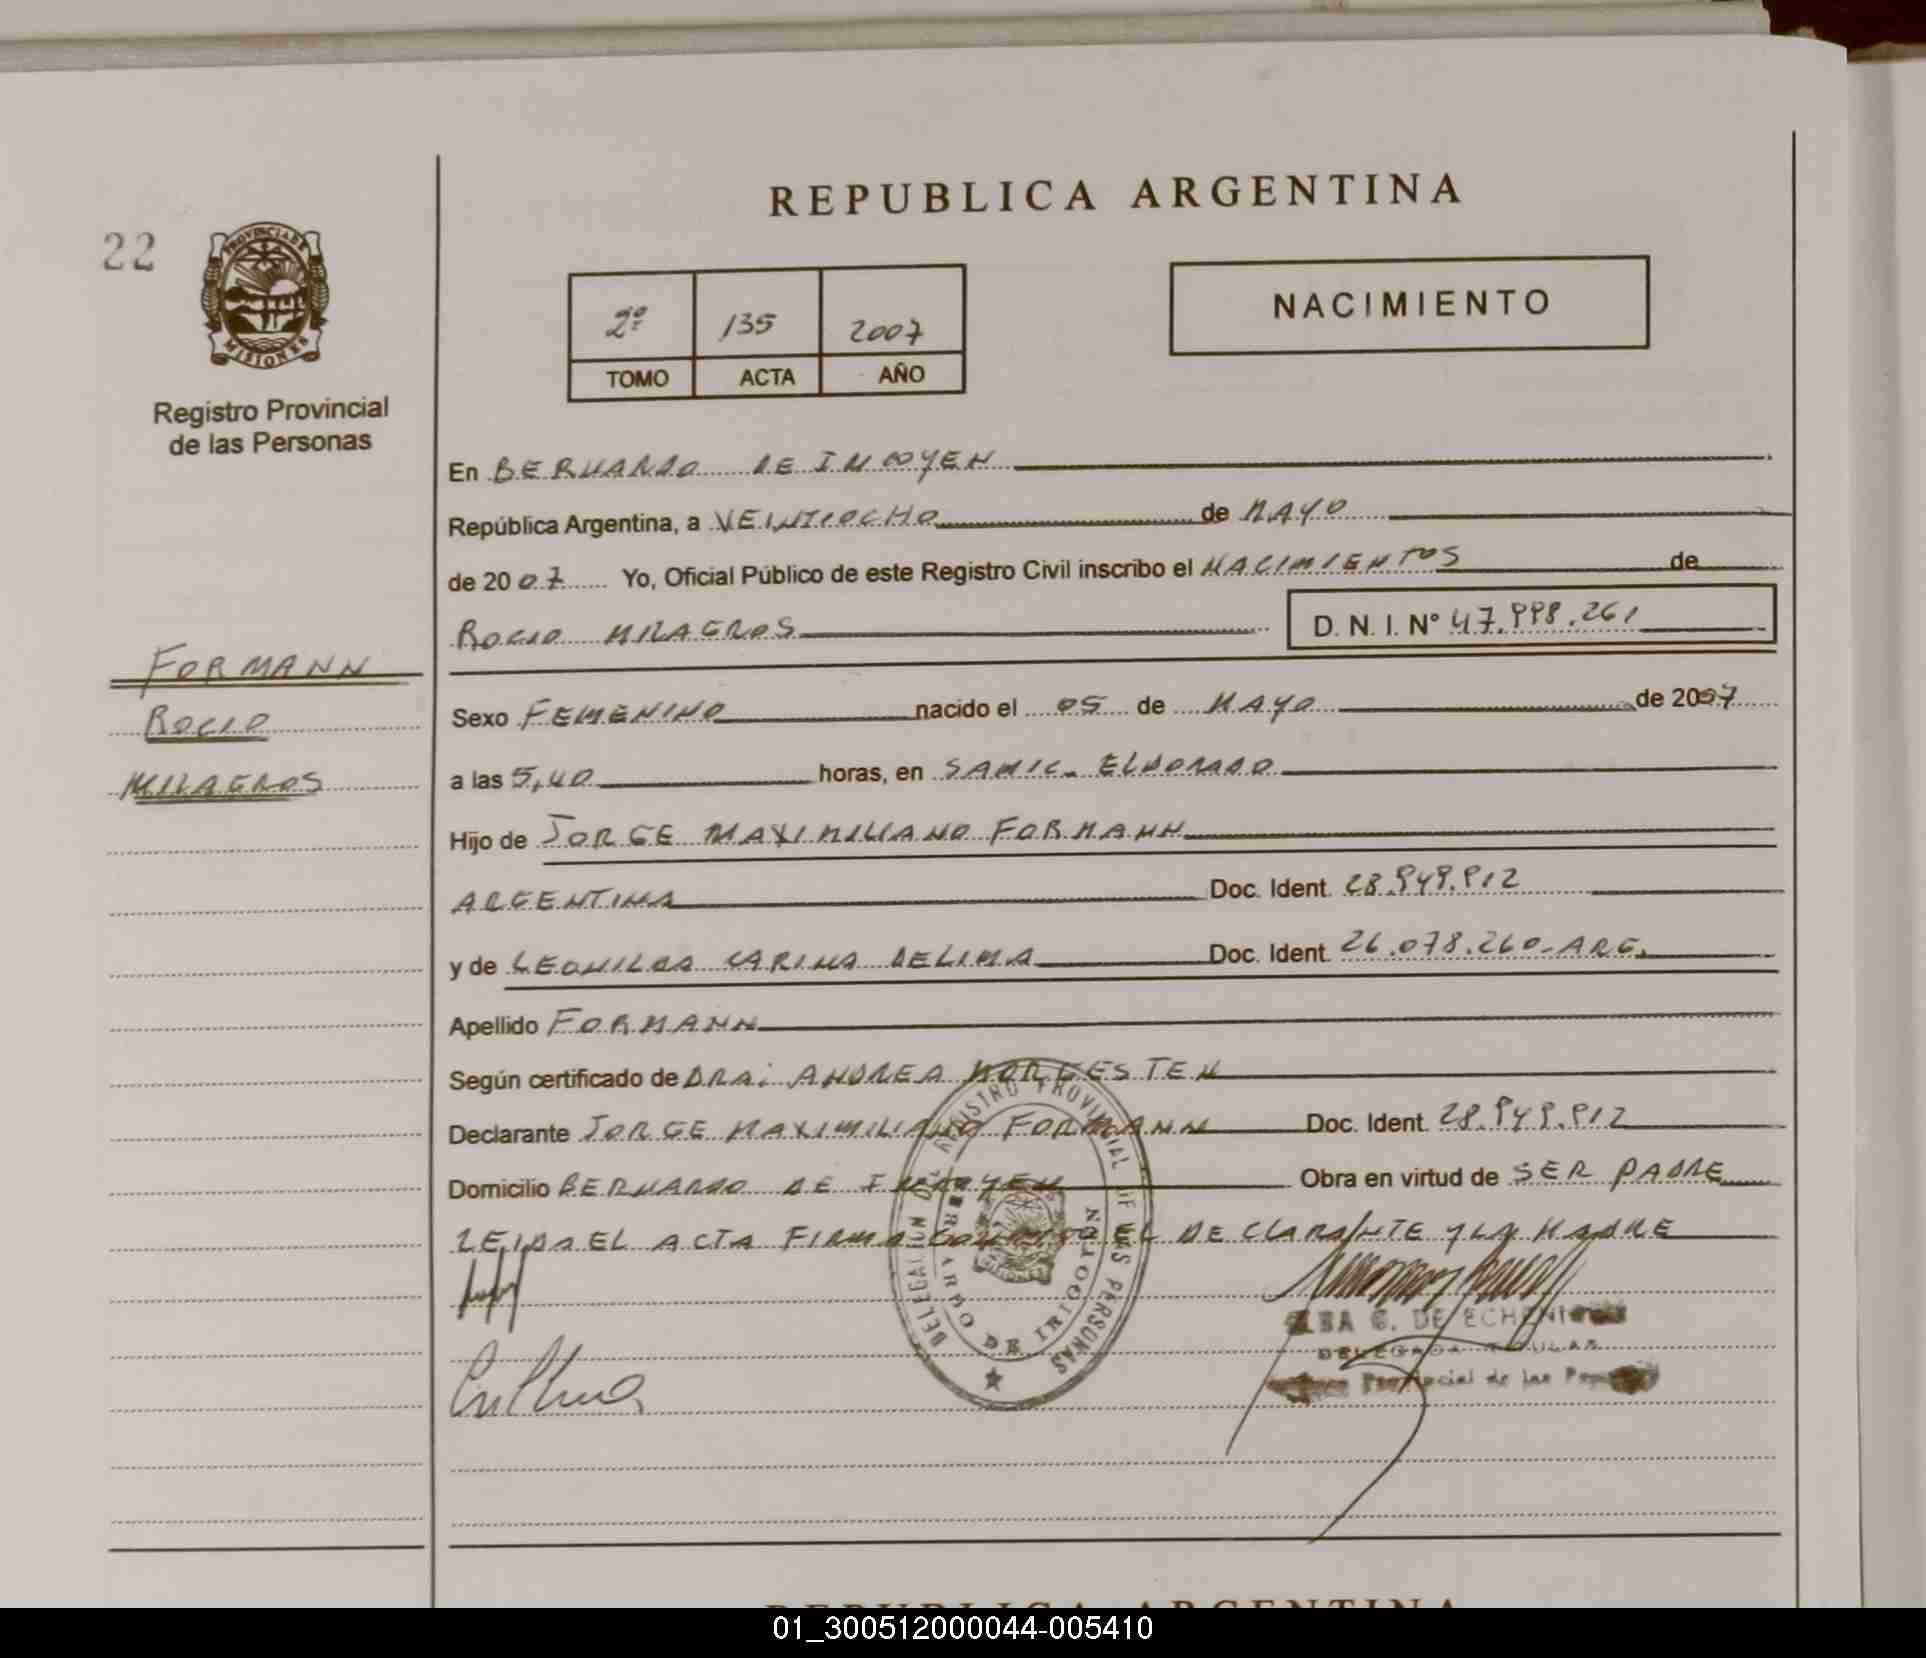 REPUBLICA ARGENTINA
22
PROVINCIA DE
MISIONES
Registro Provincial
de las Personas
2º 135 2007
TOMO ACTA AÑO
NACIMIENTO
En BERNARDO DE IRIGOYEN
República Argentina, a VEINTIOCHO de MAYO
de 2007 Yo, Oficial Público de este Registro Civil inscribo el NACIMIENTOS de
ROCIO MILAGROS D. N. I. Nº 47.998.261
FORMANN
ROCIO
MILAGROS
Sexo FEMENINO nacido el 05 de MAYO de 2007
a las 5,40 horas, en SAMIC - ELDORADO
Hijo de JORGE MAXIMILIANO FORMANN
ARGENTINA Doc. Ident. 28.949.912
y de LEONILDA CARINA DELIMA Doc. Ident. 26.078.260-ARG.
Apellido FORMANN
Según certificado de DRA: ANDREA
Declarante JORGE MAXIMILIANO FORMANN Doc. Ident. 28.949.912
Domicilio BERNARDO DE IRIGOYEN Obra en virtud de SER PADRE
LEIDA EL ACTA FIRMA CONMIGO EL DECLARANTE Y LA MADRE
DELEGACION DEL REGISTRO PROVINCIAL DE LAS PERSONAS
BERNARDO DE IRIGOYEN
MISIONES
C. DE
DELEGADA TITULAR
Provincial de las
REPUBLICA ARGENTINA
01_300512000044-005410